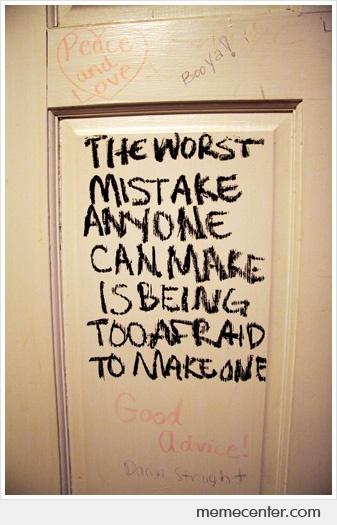 Peace
and
Love
Booya!
THE WORST
MISTAKE
ANYONE
CAN MAKE
IS BEING
TOO AFRAID
TO MAKE ONE
Good
Advice!
Damn Straight
memecenter.com